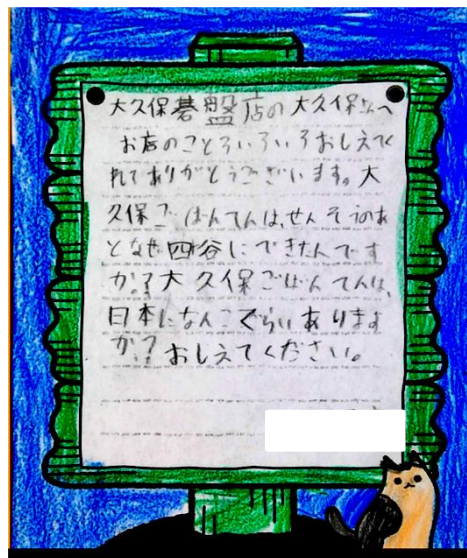 大久保碁盤店の大久保さんへ
お店のこといろいろおしえてく
れてありがとうございます。大
久保ごばんてんは、せんそうのあ
となぜ四谷にできたんです
か？大久保ごばんてんは、
日本になんこぐらいあります
か？おしえてください。